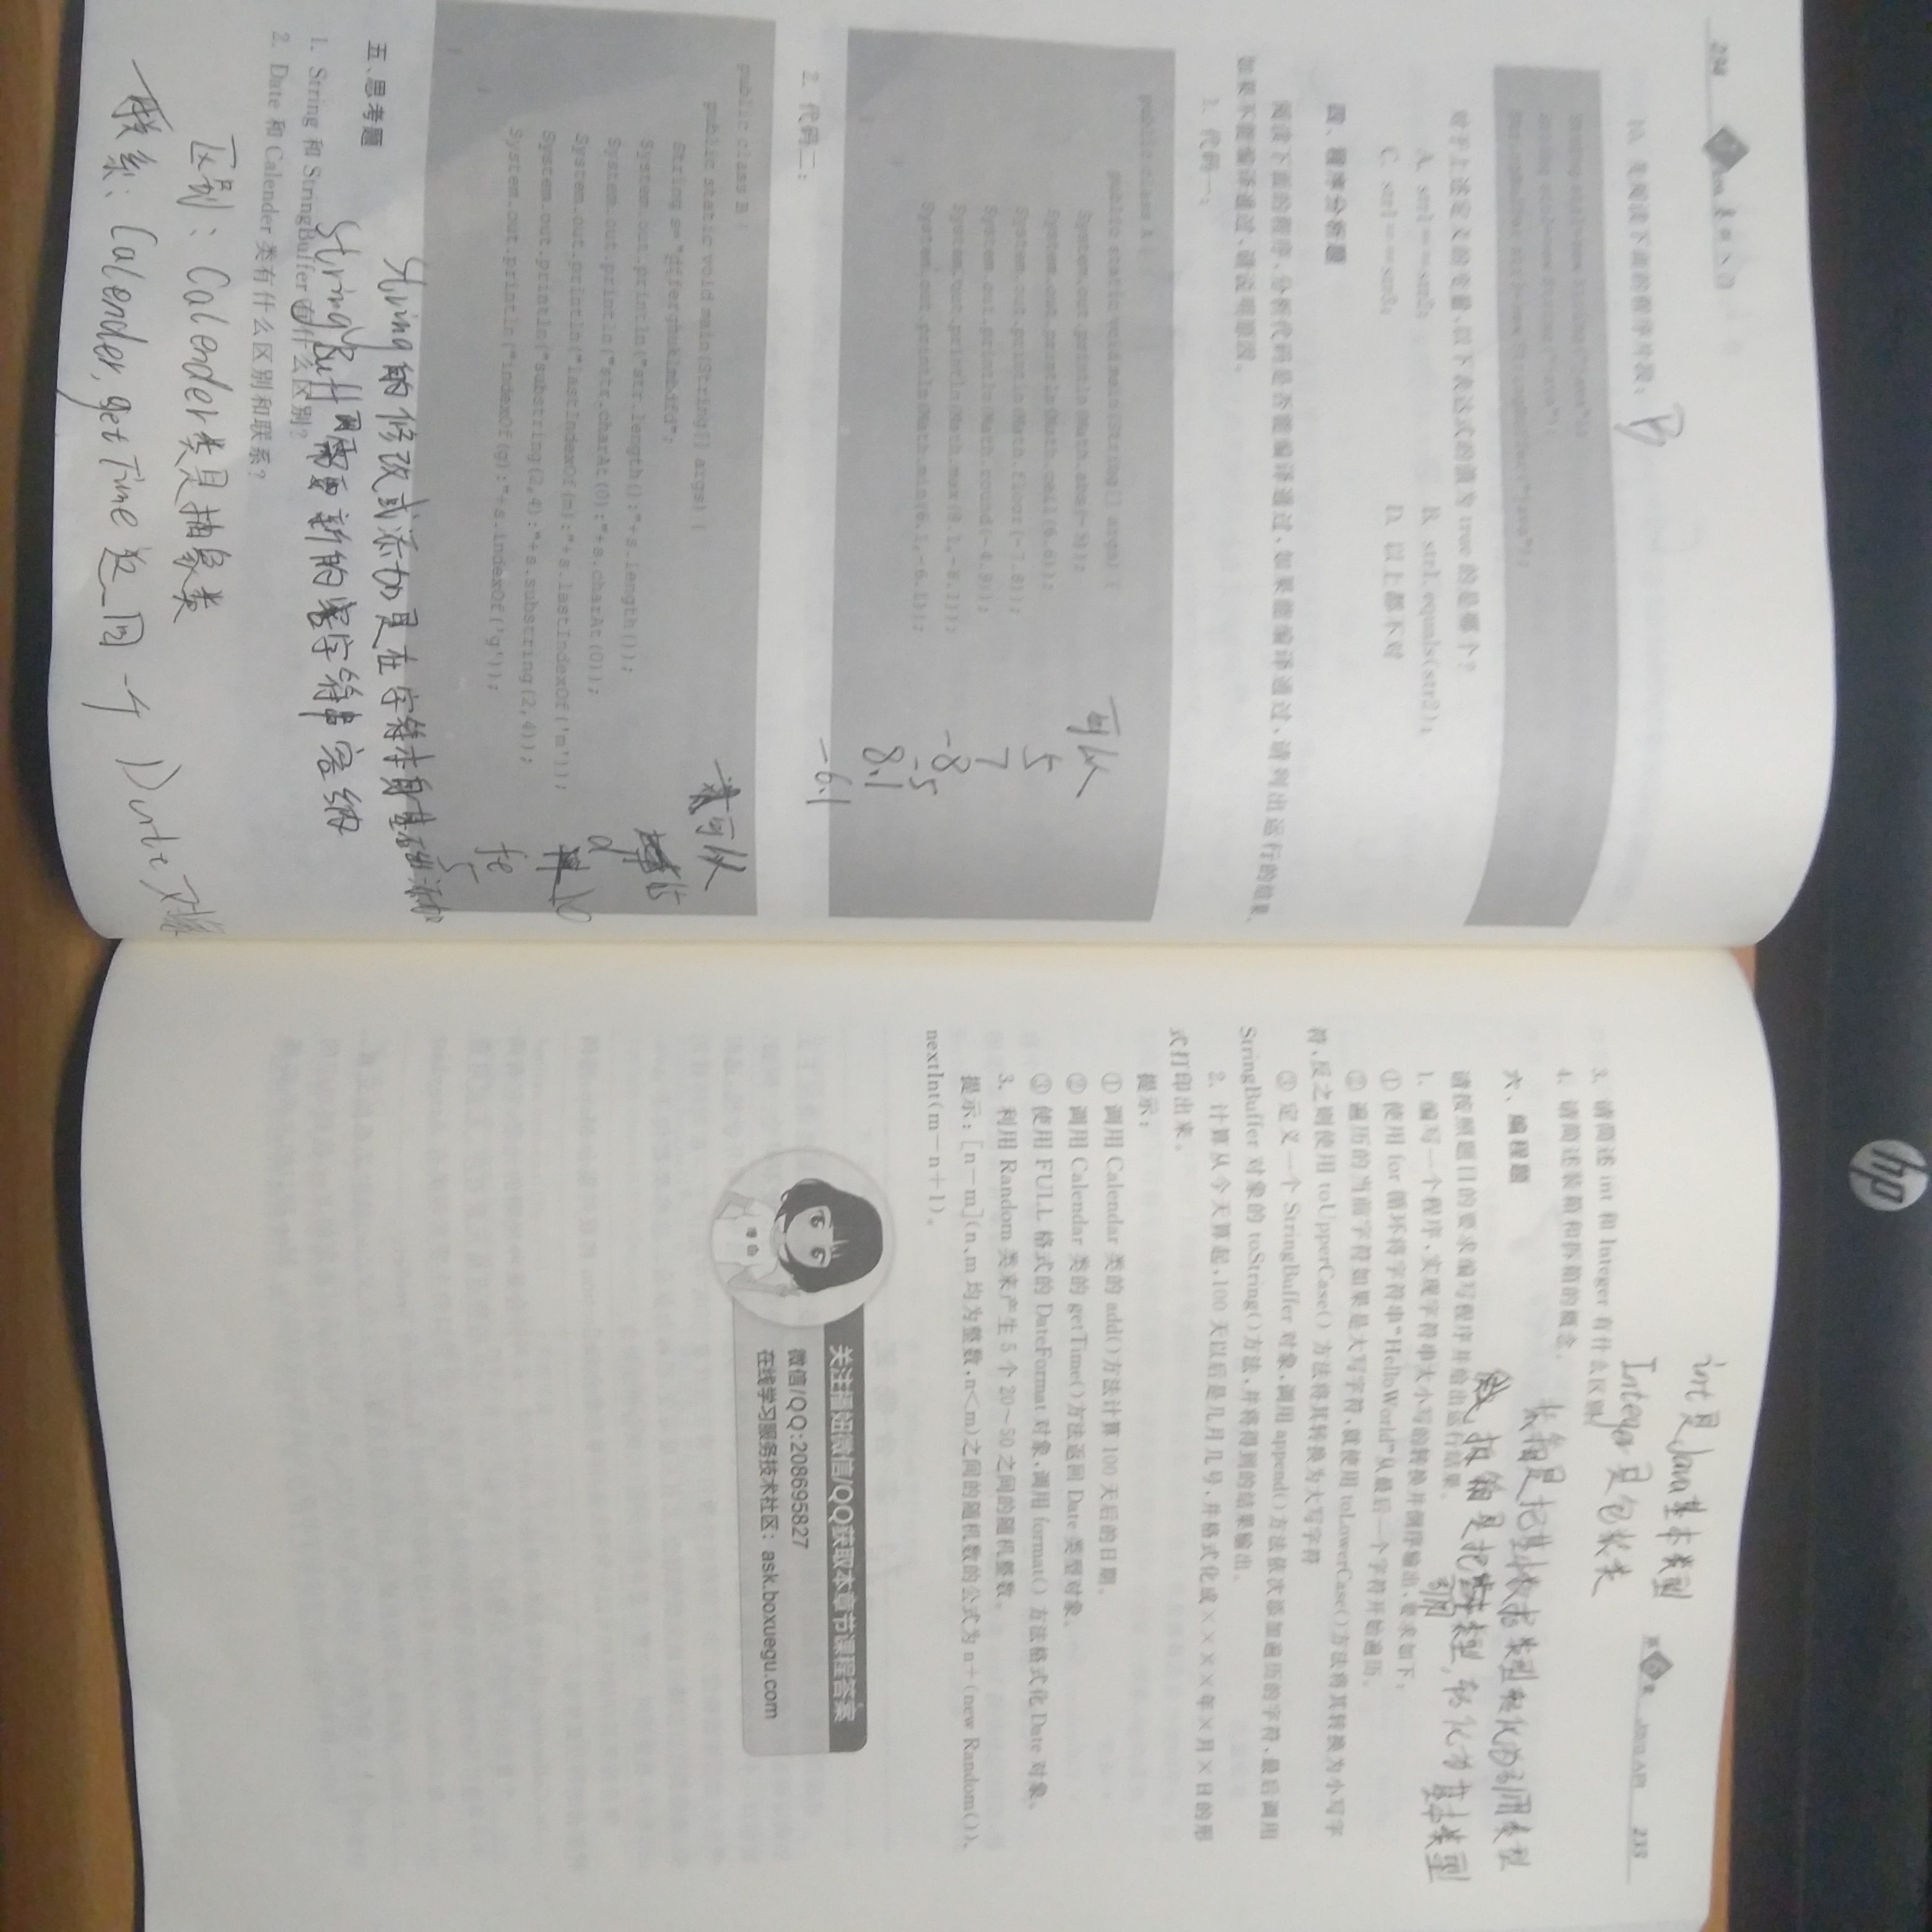 234
10. 先阅读下面的程序片段： B
对于上述定义的变量，以下表达式的值为 true 的是哪个？
A. str1==str2; B. str1.equals(str2);
C. str1==str3; D. 以上都不对
四、程序分析题
阅读下面的程序，分析代码是否能编译通过，如果能编译通过，请列出运行的结果，
如果不能编译通过，请说明原因。
1. 代码一：
public class A {
public static void main(String[] args) {
System.out.println(Math.abs(-5));
System.out.println(Math.ceil(6.6));
System.out.println(Math.floor(-7.8));
System.out.println(Math.round(-4.9));
System.out.println(Math.max(8.1,-8.1));
System.out.println(Math.min(6.1,-6.1));
}
}
可以
5
7
-8
-5
8.1
-6.1
2. 代码二：
public class B {
public static void main(String[] args) {
System.out.println("str.length():"+s.length());
System.out.println("str.charAt(0):"+s.charAt(0));
System.out.println("lastIndexOf(m):"+s.lastIndexOf('m'));
System.out.println("substring(2,4):"+s.substring(2,4));
System.out.println("indexOf(g):"+s.indexOf('g'));
}
}
可以
15
a
10
fe
5
五、思考题
String的修改或添加是在字符本身基础添加
1. String 和 StringBuffer 有什么区别？
StringBuff 需要新的字符串容纳
2. Date 和 Calender 类有什么区别和联系？
区别：Calender类是抽象类
联系：Calender, getTime 返回一个 Date 对象
第 章 JAVA API 235
int是Java基本类型
Integer是包装类
3. 请简述 int 和 Integer 有什么区别
4. 请简述装箱和拆箱的概念。
装箱是把基本数据类型转化为引用类型
拆箱是把引用类型,转化为基本类型
六、编程题
请按照题目的要求编写程序并给出运行结果。
1. 编写一个程序，实现字符串大小写的转换并倒序输出，要求如下：
① 使用 for 循环将字符串"HelloWorld"从最后一个字符开始遍历。
② 遍历的当前字符如果是大写字符，就使用 toLowerCase()方法将其转换为小写字
符，反之则使用 toUpperCase() 方法将其转换为大写字符
③ 定义一个 StringBuffer 对象，调用 append()方法依次添加遍历的字符，最后调用
StringBuffer 对象的 toString()方法，并将得到的结果输出。
2. 计算从今天算起，100 天以后是几月几号，并格式化成××××年×月×日的形
式打印出来。
提示：
① 调用 Calendar 类的 add()方法计算 100 天后的日期。
② 调用 Calendar 类的 getTime()方法返回 Date 类型对象。
③ 使用 FULL 格式的 DateFormat 对象，调用 format() 方法格式化 Date 对象。
3. 利用 Random 类来产生 5 个 20～50 之间的随机整数。
提示：[n－m](n、m 均为整数，n＜m)之间的随机数的公式为 n＋(new Random()).
nextInt(m－n＋1)。
关注播妞微信/QQ获取本章节课程答案
微信/QQ:208695827
在线学习服务技术社区：ask.boxuegu.com
hp